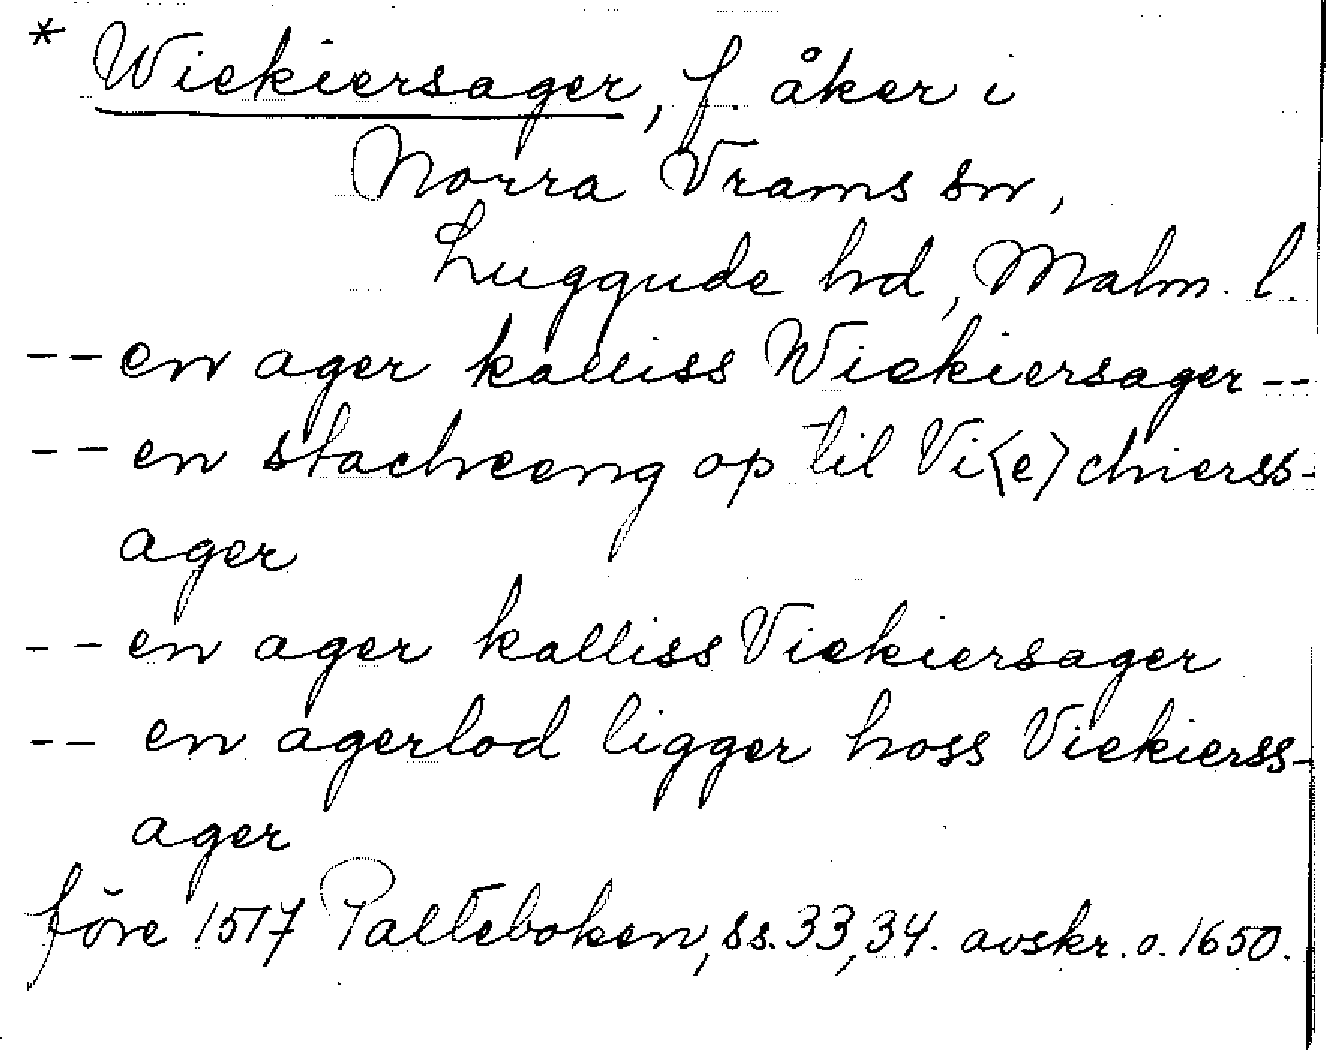 * Wiekiersager, f. åker i
Norra Vrams sn,
Luggude hd, Malm. l.
-- en ager kalliss Wiekiersager --
-- en stacheeng op til Vi⟨e⟩chierss-
ager
-- en ager kalliss Viekiersager
-- en agerlod ligger hoss Viekierss-
ager
före 1517 Palteboken, ss. 33, 34. avskr. o. 1650.